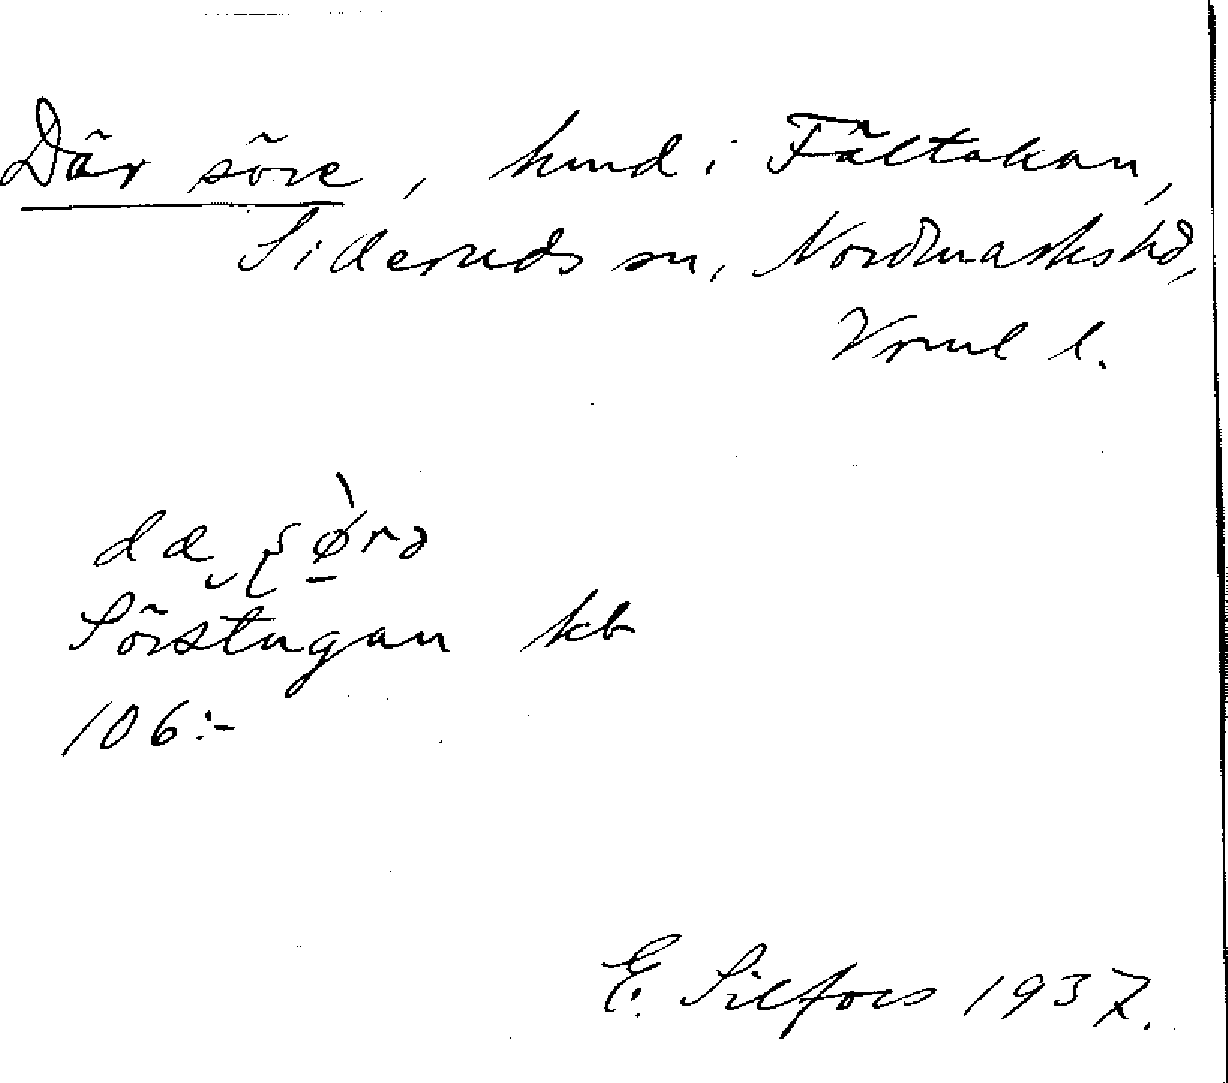 Där söre, hmd i Fältakan,
Sileruds sn, Nordmarks hd,
Vrml l.
dæ ʂø̀rə
Sörstugan kb
106:-
E. Silfors 1937.